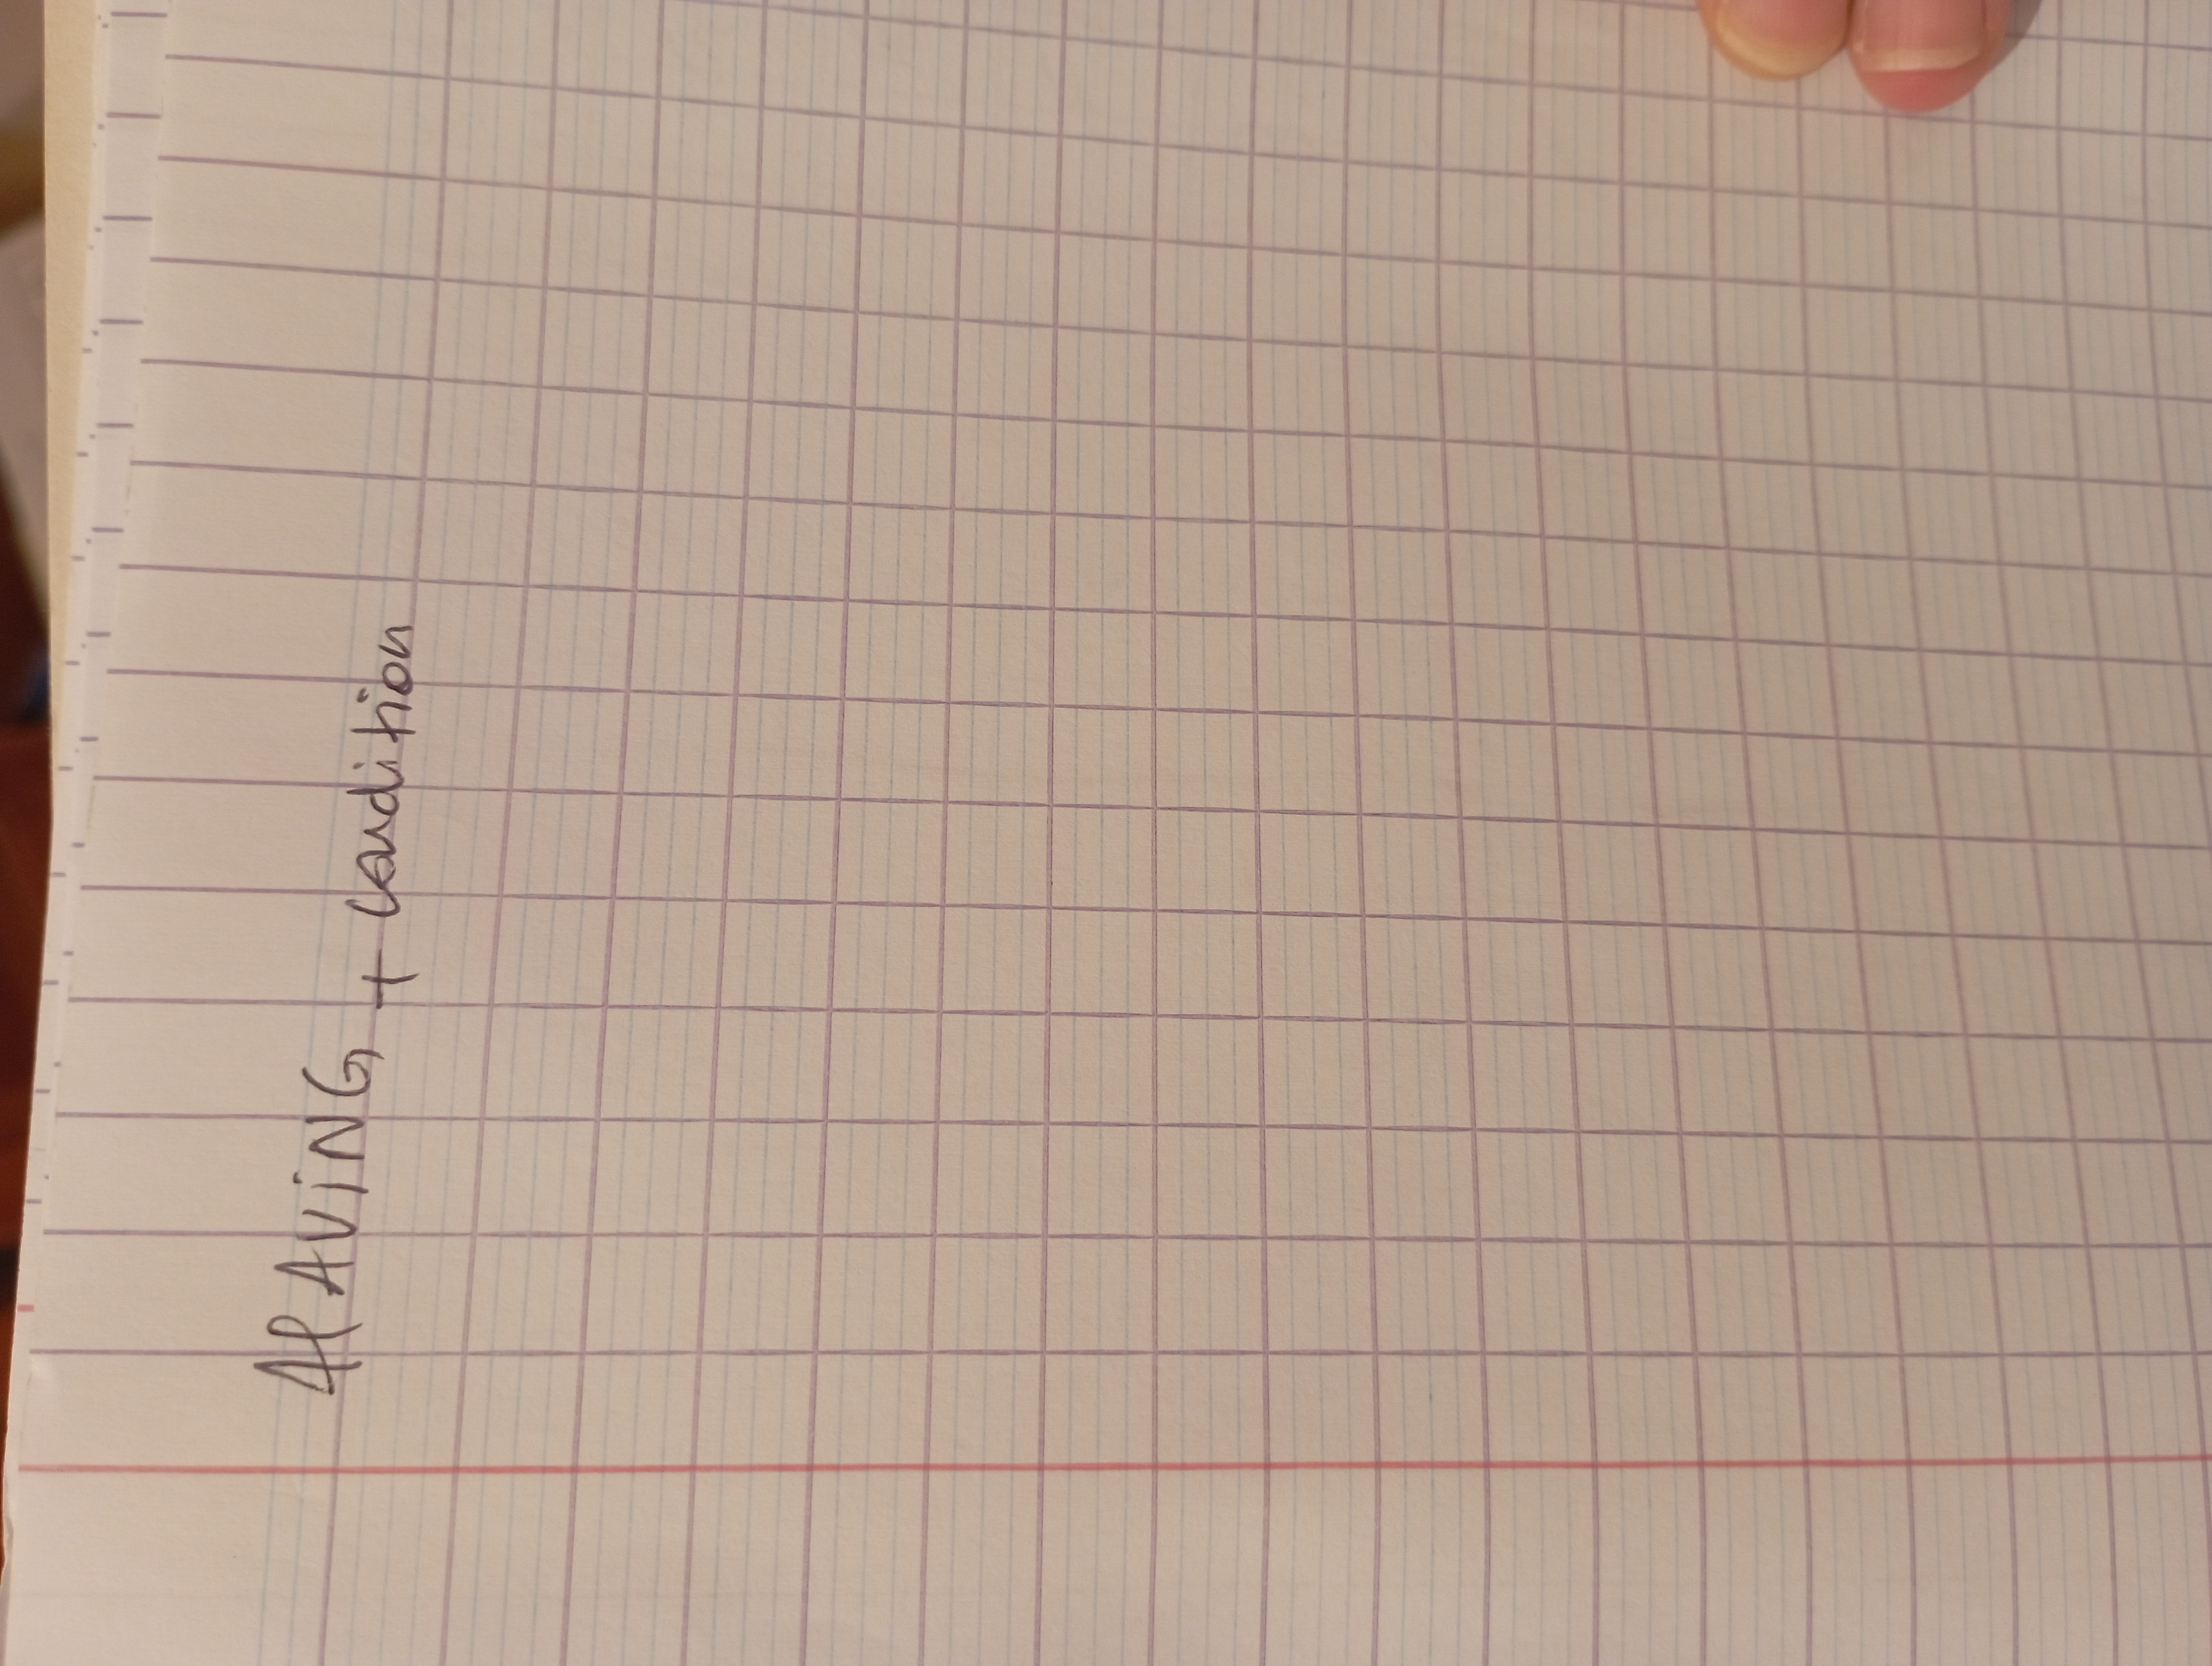 HAViNG + condition